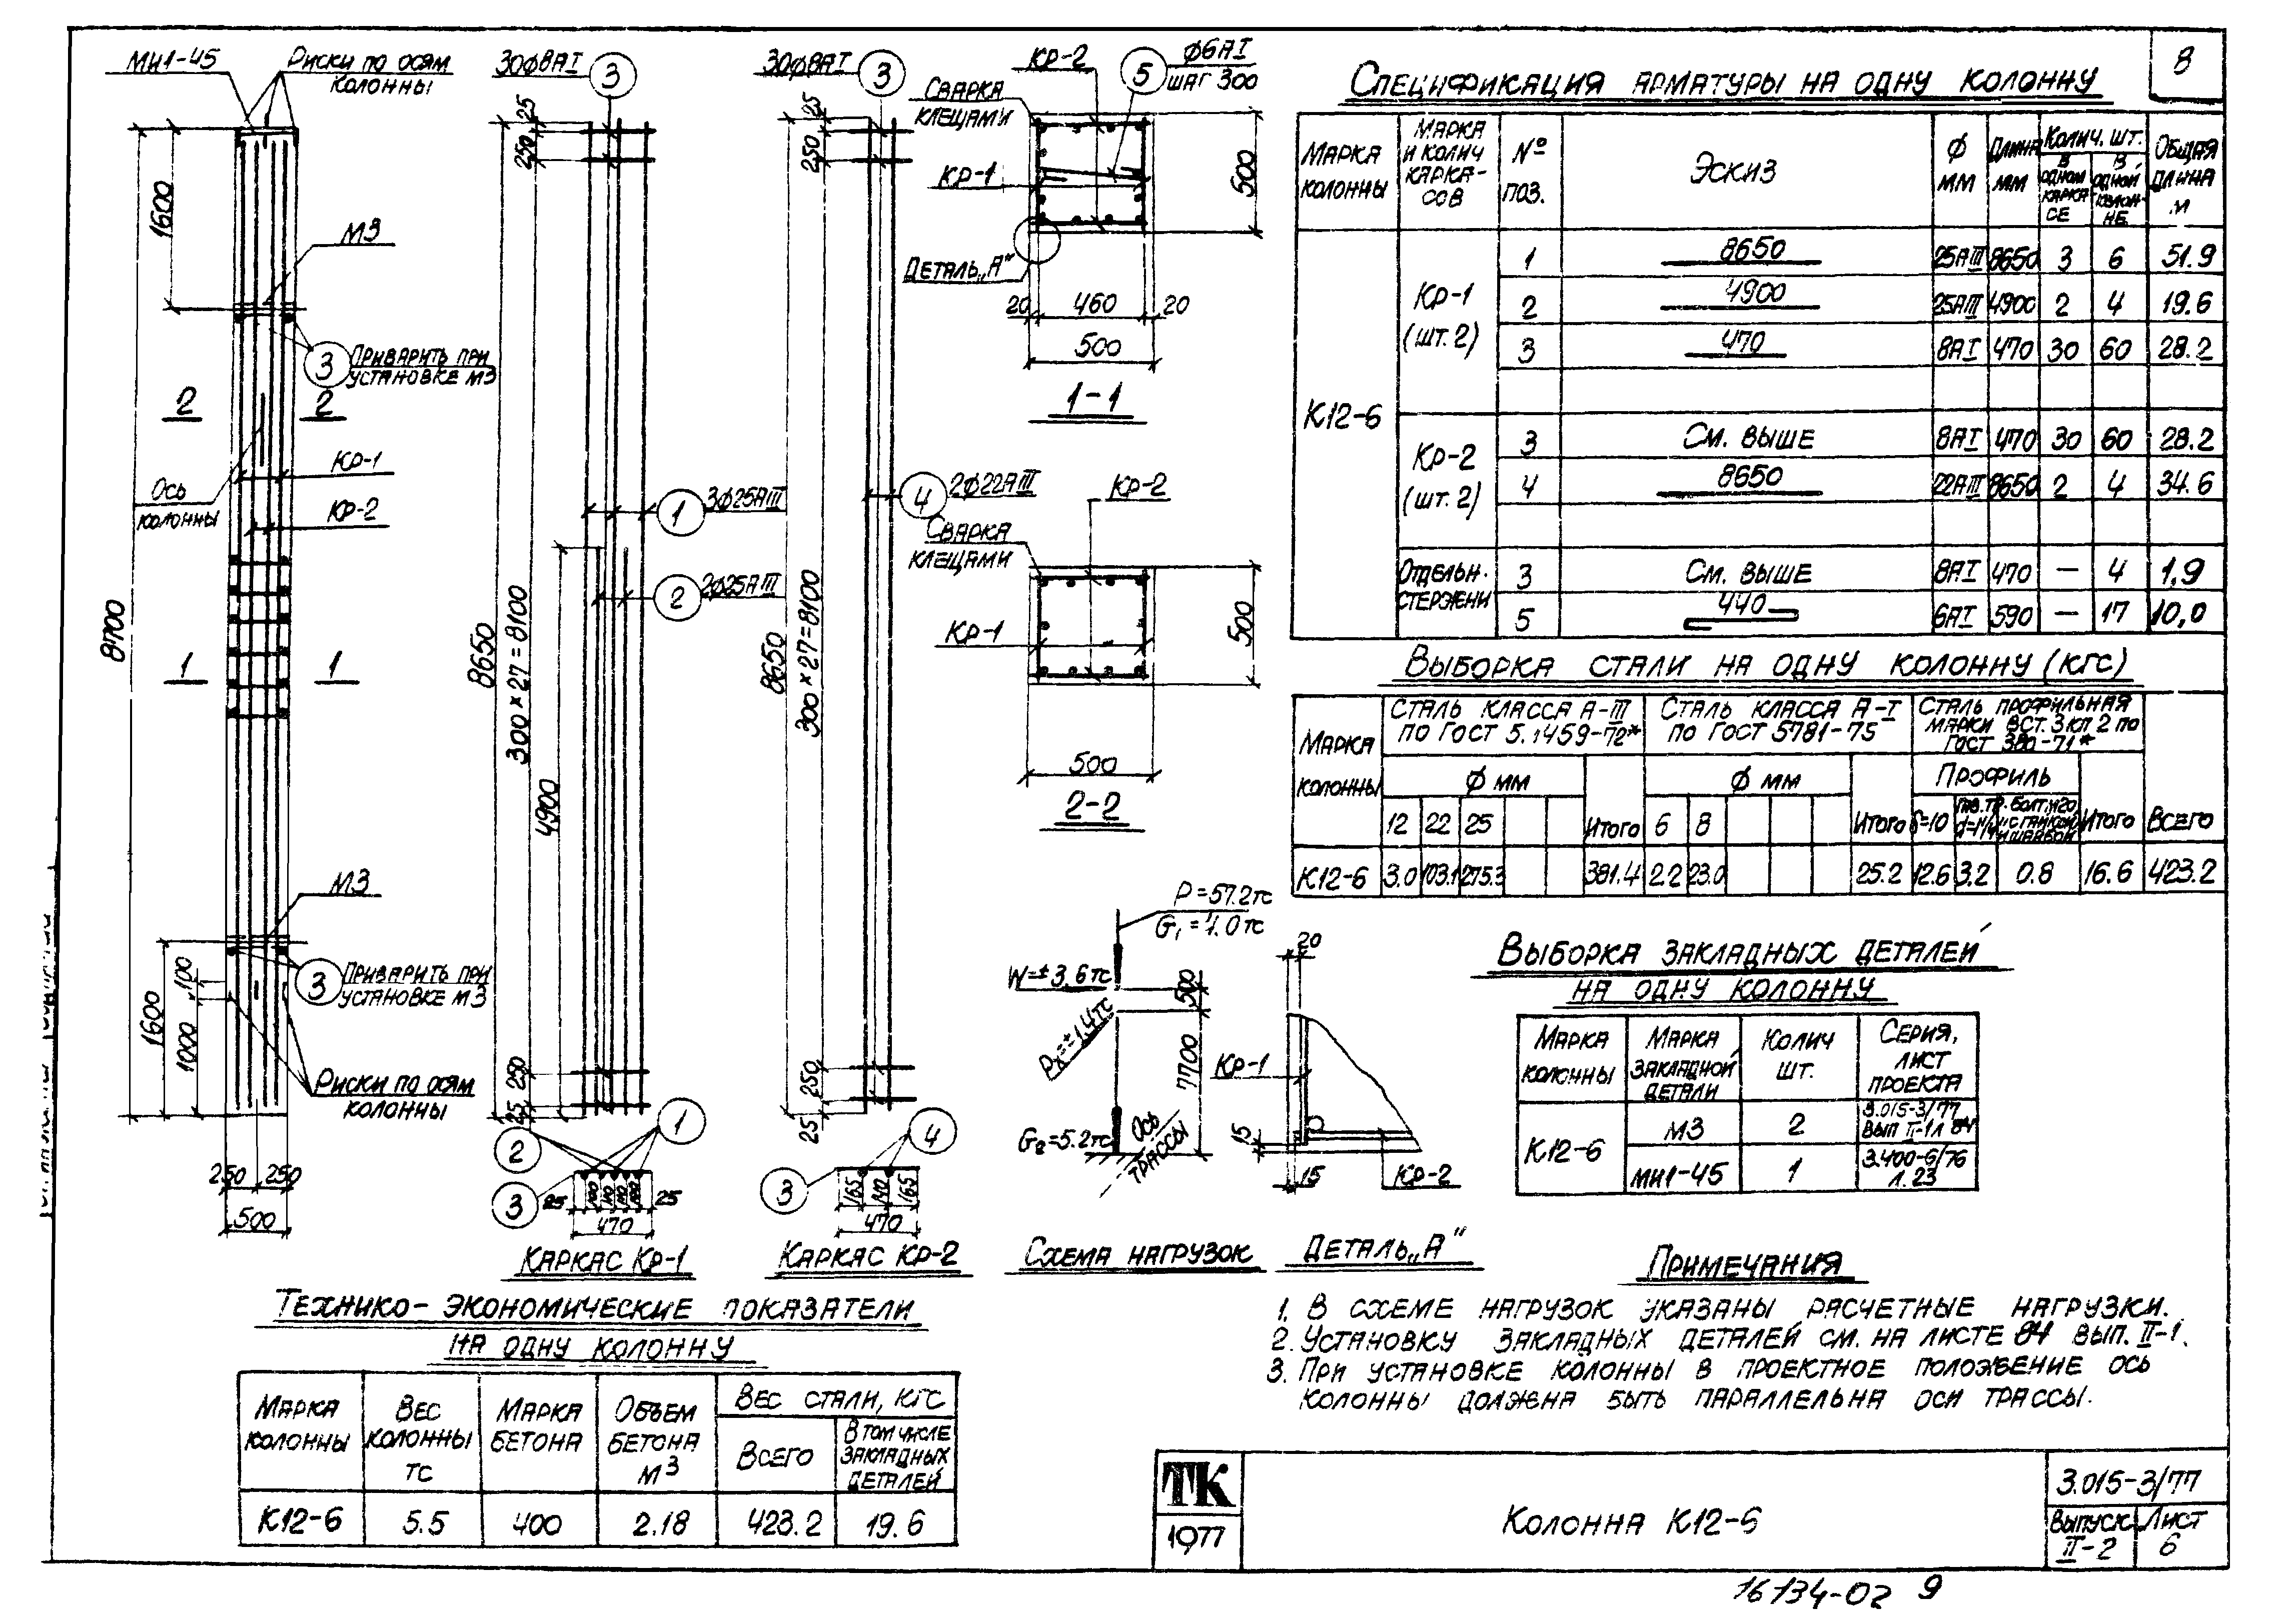 8
МИ1-45
Риски по осям
колонны
1600
М3
3
Приварить при
установке М3
2
2
Кр-1
Ось
колонны
Кр-2
8700
1
1
М3
3
Приварить при
установке М3
1600
100
1000
Риски по осям
колонны
250
250
500
30ф8АI
3
25
250
1
3ф25АIII
2
2ф25АIII
8650
300×27=8100
4900
250
25
1
2
3
25
100
110
110
100
25
470
Каркас Кр-1
30ф8АI
3
25
250
4
2ф22АIII
8650
300×27=8100
250
25
4
3
165
140
165
470
Каркас Кр-2
Кр-2
5
ф6АI
шаг 300
Сварка
клещами
Кр-1
500
Деталь „А"
20
460
20
500
1-1
Кр-2
Сварка
клещами
Кр-1
500
500
2-2
P=57.2тс
W=±3.6тс
500
7700
G₂=5.2тс
Ось
трассы
Схема нагрузок
20
Кр-1
15
15
Кр-2
Деталь „А"
Спецификация арматуры на одну колонну
Марка колонны
Марка и колич каркасов
№ поз.
Эскиз
ф мм
Длина мм
Колич. шт.
В одном каркасе
В одной колонне
Общая длина м
К12-6
Кр-1 (шт. 2)
1 8650 25АIII 8650 3 6 51.9
2 4900 25АIII 4900 2 4 19.6
3 470 8АI 470 30 60 28.2
Кр-2 (шт. 2)
3 См. выше 8АI 470 30 60 28.2
4 8650 22АIII 8650 2 4 34.6
Отдельн. стержни
3 См. выше 8АI 470 — 4 1,9
5 440 6АI 590 — 17 10,0
Выборка стали на одну колонну (кгс)
Марка колонны
Сталь класса А-III
по ГОСТ 5.1459-72*
Сталь класса А-I
по ГОСТ 5781-75
Сталь профильная
марки ВСт.3кп2 по
ГОСТ 380-71*
ф мм
ф мм
Профиль
12 22 25 Итого 6 8 Итого δ=10 Итого Всего
К12-6 3.0 103.1 275.3 381.4 2.2 23.0 25.2 12.6 3.2 0.8 16.6 423.2
Выборка закладных деталей
на одну колонну
Марка колонны
Марка закладной детали
Колич шт.
Серия, лист проекта
К12-6
М3 2 3.015-3/77 вып II-1 л 84
МИ1-45 1 3.400-6/76 л. 23
Примечания
1. В схеме нагрузок указаны расчетные нагрузки.
2. Установку закладных деталей см. на листе 84 вып. II-1.
3. При установке колонны в проектное положение ось
колонны должна быть параллельна оси трассы.
Технико-экономические показатели
на одну колонну
Марка колонны
Вес колонны тс
Марка бетона
Объем бетона м³
Вес стали, кгс
Всего
В том числе закладных деталей
К12-6 5.5 400 2.18 423.2 19.6
ТК
1977
Колонна К12-6
3.015-3/77
Выпуск
II-2
Лист
6
16134-02 9